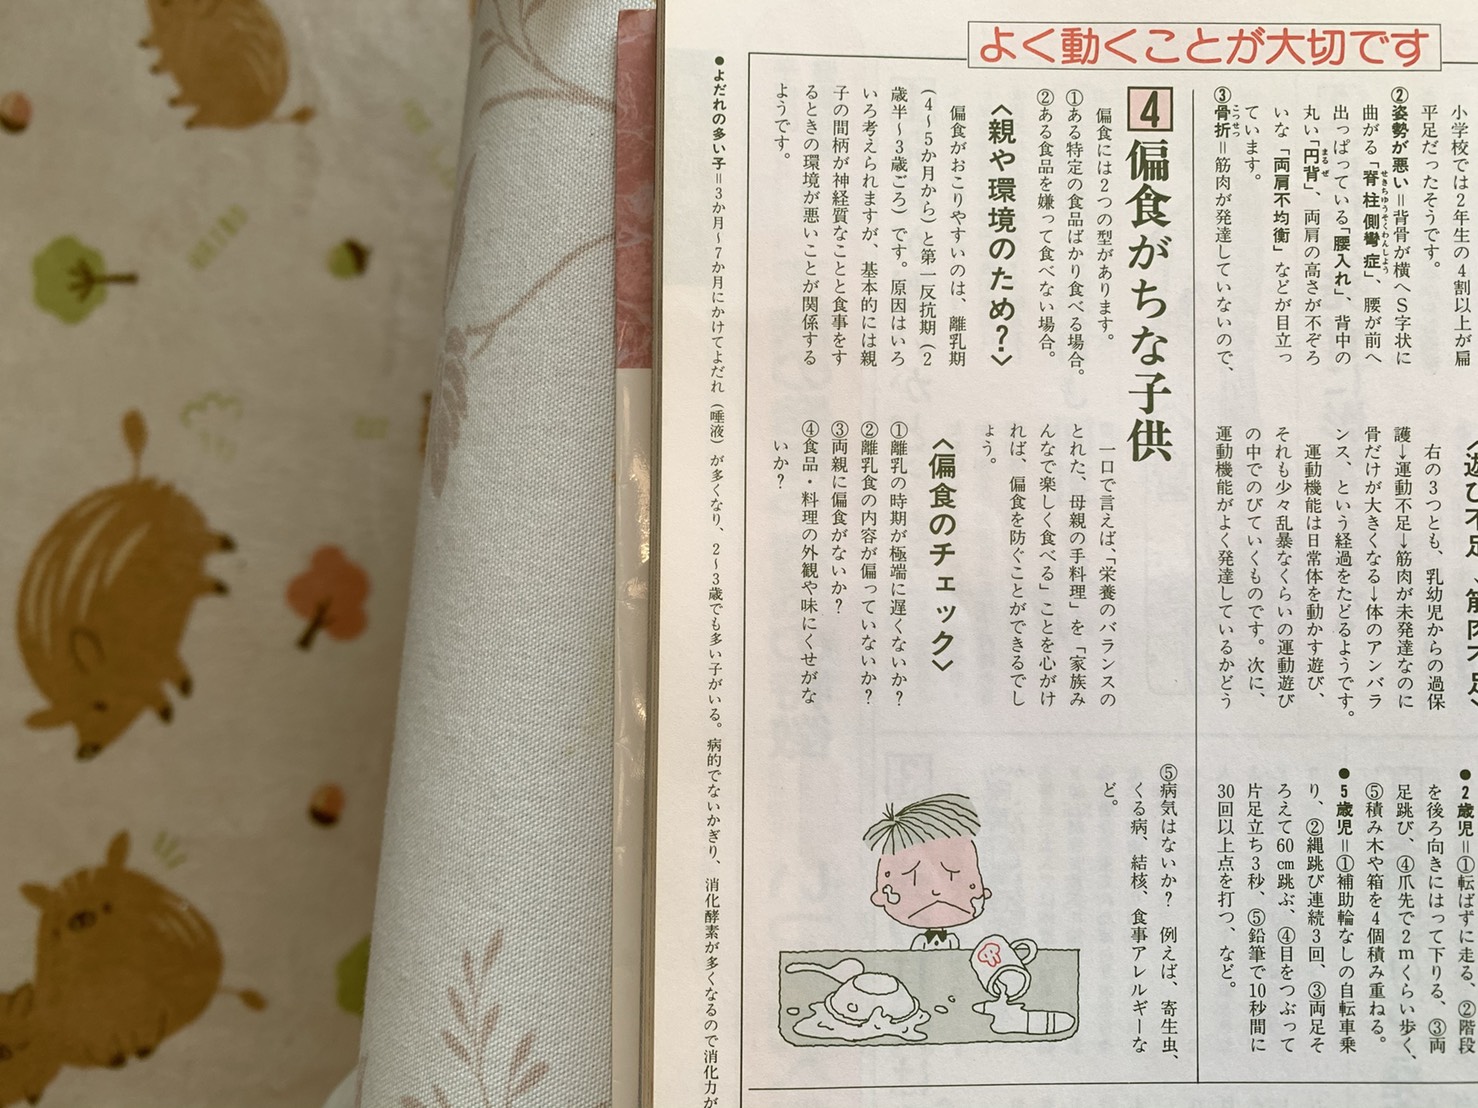 よく動くことが大切です
小学校では2年生の4割以上が扁
平足だったそうです。
②姿勢が悪い＝背骨が横へS字状に
曲がる「脊柱側彎症」、腰が前へ
出っぱっている「腰入れ」、背中の
丸い「円背」、両肩の高さが不ぞろ
いな「両肩不均衡」などが目立っ
ています。
③骨折＝筋肉が発達していないので、
右の3つとも、乳幼児からの過保
護→運動不足→筋肉が未発達なのに
骨だけが大きくなる→体のアンバラ
ンス、という経過をたどるようです。
運動機能は日常体を動かす遊び、
それも少々乱暴なくらいの運動遊び
の中でのびていくものです。次に、
運動機能がよく発達しているかどう
●2歳児＝①転ばずに走る、②階段
を後ろ向きにはって下りる、③両
足跳び、④爪先で2mくらい歩く、
⑤積み木や箱を4個積み重ねる。
●5歳児＝①補助輪なしの自転車乗
り、②縄跳び連続3回、③両足そ
ろえて60cm跳ぶ、④目をつぶって
片足立ち3秒、⑤鉛筆で10秒間に
30回以上点を打つ、など。
4 偏食がちな子供
偏食には2つの型があります。
①ある特定の食品ばかり食べる場合。
②ある食品を嫌って食べない場合。
〈親や環境のため？〉
偏食がおこりやすいのは、離乳期
(4～5か月から)と第一反抗期(2
歳半～3歳ごろ)です。原因はいろ
いろ考えられますが、基本的には親
子の間柄が神経質なことと食事をす
るときの環境が悪いことが関係する
ようです。
一口で言えば、「栄養のバランスの
とれた、母親の手料理」を「家族み
んなで楽しく食べる」ことを心がけ
れば、偏食を防ぐことができるでし
ょう。
〈偏食のチェック〉
①離乳の時期が極端に遅くないか？
②離乳食の内容が偏っていないか？
③両親に偏食がないか？
④食品・料理の外観や味にくせがな
いか？
⑤病気はないか？ 例えば、寄生虫、
くる病、結核、食事アレルギーな
ど。
●よだれの多い子＝3か月～7か月にかけてよだれ(唾液)が多くなり、2～3歳でも多い子がいる。病的でないかぎり、消化酵素が多くなるので消化力が